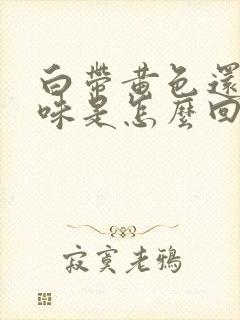 白帶黃色還
味是怎麼回
寂寞老鴉